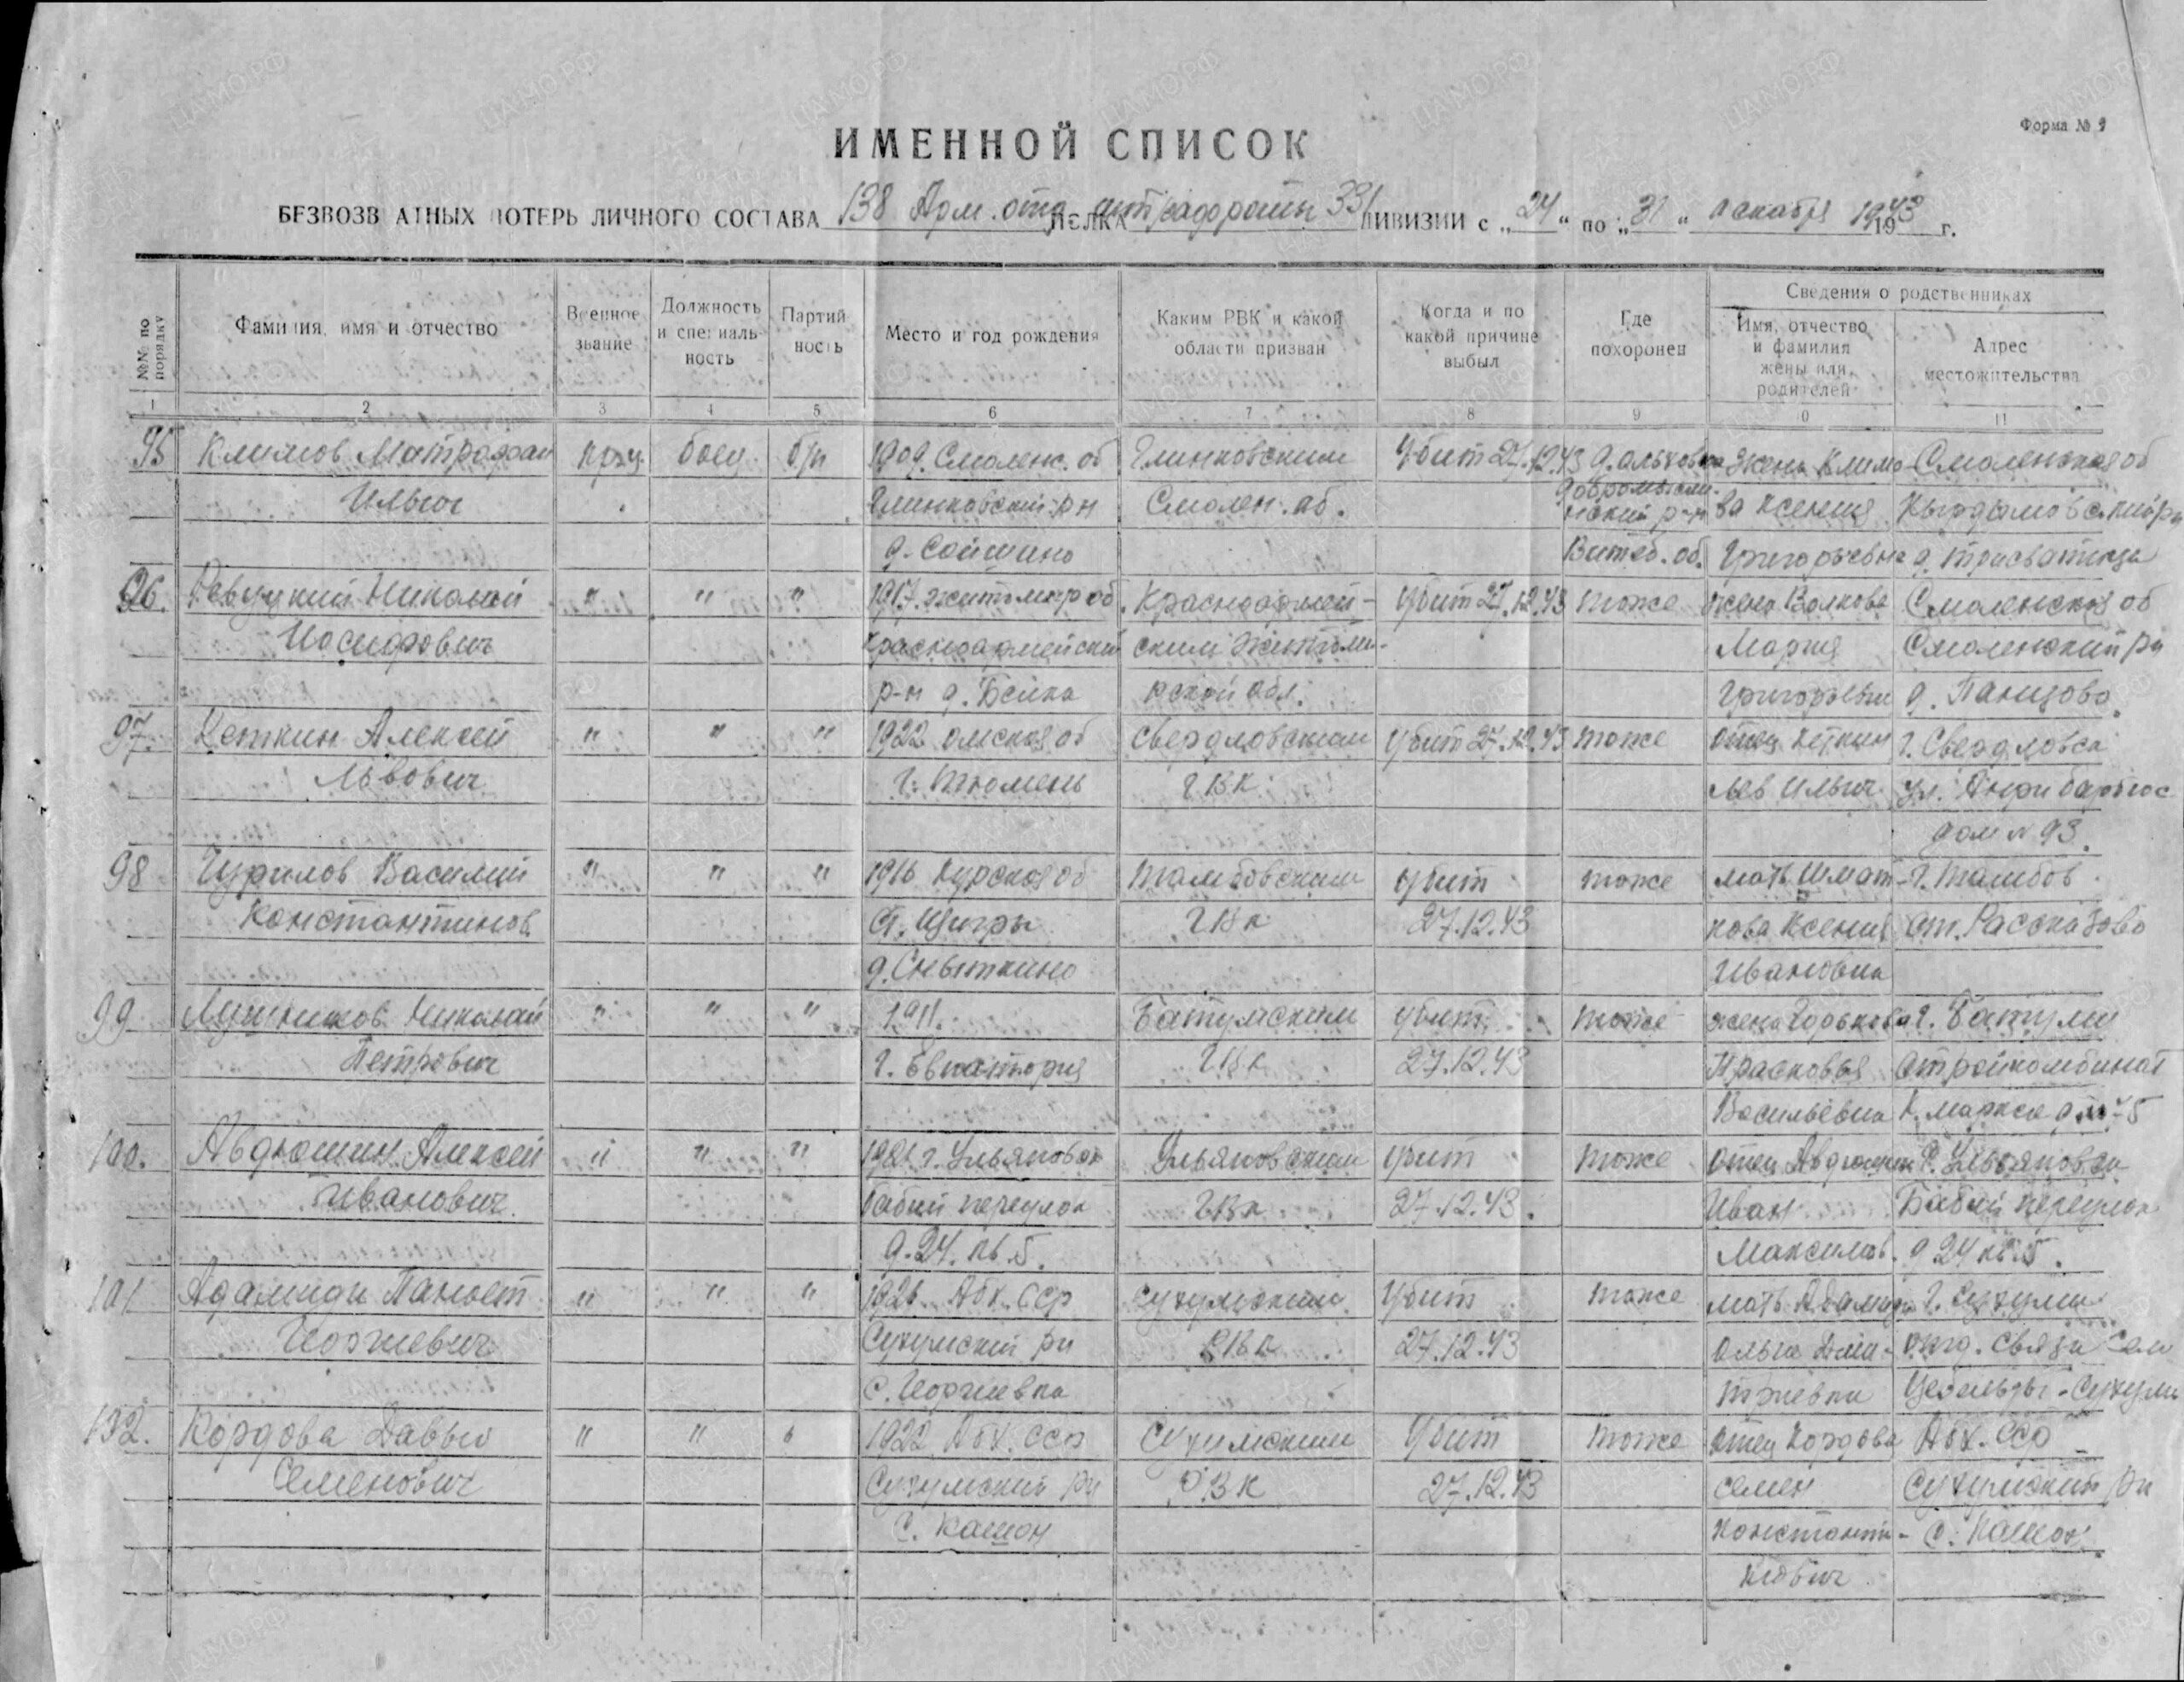 Форма № 9
ИМЕННОЙ СПИСОК
БЕЗВОЗВ АТНЫХ ПОТЕРЬ ЛИЧНОГО СОСТАВА 138 Арм. отд. штрафроты ПОЛКА 331 ДИВИЗИИ с „24“ по „31“ декабря 1943 19 г.
№№ по порядку
Фамилия, имя и отчество
Военное звание
Должность и специаль- ность
Партий ность
Место и год рождения
Каким РВК и какой области призван
Когда и по какой причине выбыл
Где похоронен
Сведения о родственниках
Имя, отчество и фамилия жены или родителей
Адрес местожительства
1 2 3 4 5 6 7 8 9 10 11
95 Климов Митрофан кр-ц. боец б/п 1909. Смоленс. об Глинковским Убит 27.12.43 д. Ольховка Жена Климо- Смоленская об
Ильич Глинковский р-н Смолен. об. Добромысли- нский р-н ва Ксения Кардымовский рн
д. Сойшино Витеб. об. Григорьевна д.
96. Ревуцкий Николай " " " 1917. Житомир об. Красноармей- Убит 27.12.43 тоже жена Волкова Смоленская об
Иосифович Красноармейский ским Житоми- Мария Смоленский рн
р-н д. Белка рской обл. Григорьевн д. Панизово
97. Кеткин Алексей " " " 1922 Омская об Свердловским Убит 27.12.43 тоже Отец Кеткин г. Свердловск
Львович г. Тюмень ГВК Лев Ильич ул. Анри Барбюс
дом № 93.
98 Чурилов Василий " " " 1916 Курская об Тамбовским убит тоже мать Шмат- г. Тамбов
Константинов. ст. Щигры ГВК 27.12.43 кова Ксения ст. Рассказово
д. Сныткино Ивановна
99 Лушников Николай " " " 1911. Батумским убит тоже жена Горькова г. Батуми
Петрович г. Евпатория ГВК 27.12.43 Прасковья Стройкомбинат
Васильевна К. Маркса д № 5
100. Авдюшин Алексей " " " 1921 г. Ульяновск Ульяновским убит тоже Отец Авдюшин г. Ульяновск
Иванович. Бабий переулок ГВК 27.12.43. Иван Бабий переулок
д. 24. кв. 5. Максимов. д 24 кв. 5.
101 Адамиди Панает " " " 1926. Абх. ССР Сухумским Убит тоже мать Адамиди г. Сухуми
Георгиевич Сухумский рн РВК 27.12.43 Ольга Дми- отд. связи
с. Георгиевка триевна Цебельды - Сухуми
132. Кордова Давыд " " " 1922 Абх. ССР Сухумским Убит тоже Отец Кордова Абх. ССР
Семенович Сухумский рн РВК 27.12.43 Семен Сухумский рн
с. Каштон Константи- с. Каштон
нович